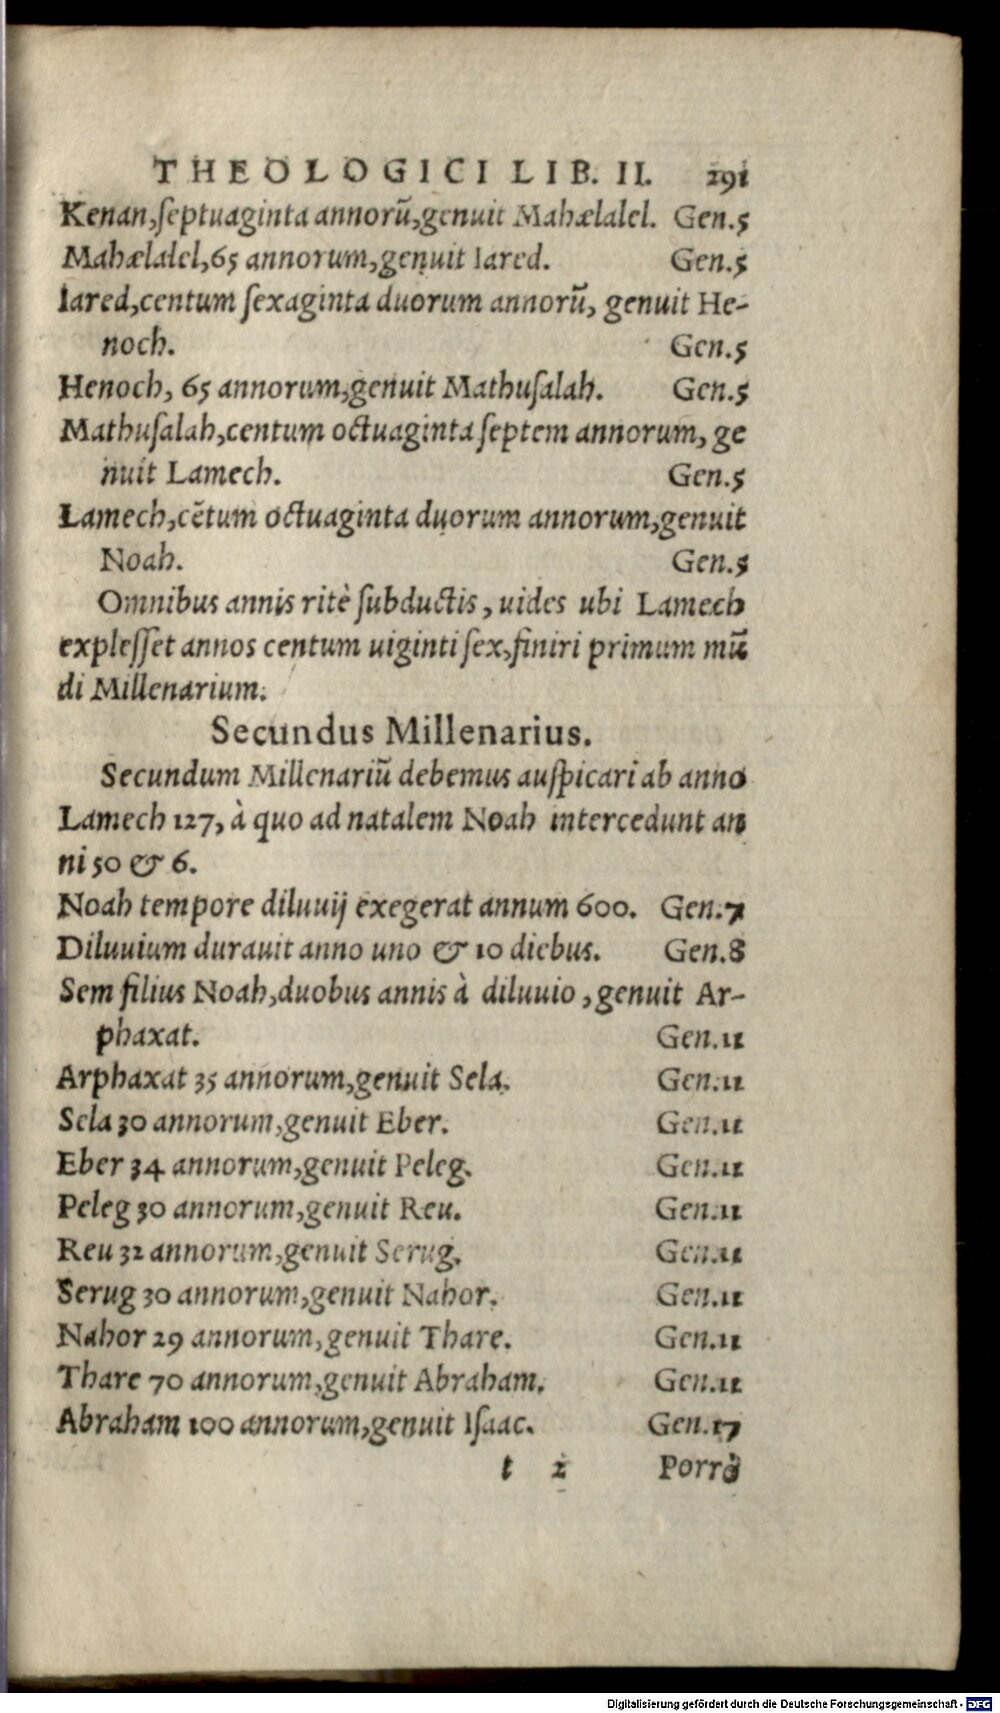 THEOLOGICI LIB. II. 291
Kenan,septuaginta annorũ,genuit Mahælalel. Gen.5
Mahælalel,65 annorum,genuit Iared. Gen.5
Iared,centum sexaginta duorum annorũ, genuit He-
noch. Gen.5
Henoch, 65 annorum,genuit Mathusalah. Gen.5
Mathusalah,centum octuaginta septem annorum, ge
nuit Lamech. Gen.5
Lamech,cẽtum octuaginta duorum annorum,genuit
Noah. Gen.5
Omnibus annis ritè subductis, uides ubi Lamech
explesset annos centum uiginti sex,finiri primum mũ
di Millenarium.
Secundus Millenarius.
Secundum Millenariũ debemus auspicari ab anno
Lamech 127, à quo ad natalem Noah intercedunt an
ni 50 & 6.
Noah tempore diluuij exegerat annum 600. Gen.7
Diluuium durauit anno uno & 10 diebus. Gen.8
Sem filius Noah,duobus annis à diluuio, genuit Ar-
phaxat. Gen.11
Arphaxat 35 annorum,genuit Sela. Gen.11
Sela 30 annorum,genuit Eber. Gen.11
Eber 34 annorum,genuit Peleg. Gen.11
Peleg 30 annorum,genuit Reu. Gen.11
Reu 32 annorum,genuit Serug. Gen.11
Serug 30 annorum,genuit Nahor. Gen.11
Nahor 29 annorum,genuit Thare. Gen.11
Thare 70 annorum,genuit Abraham. Gen.11
Abraham 100 annorum,genuit Isaac. Gen.17
t 2 Porrò
Digitalisierung gefördert durch die Deutsche Forschungsgemeinschaft - DFG